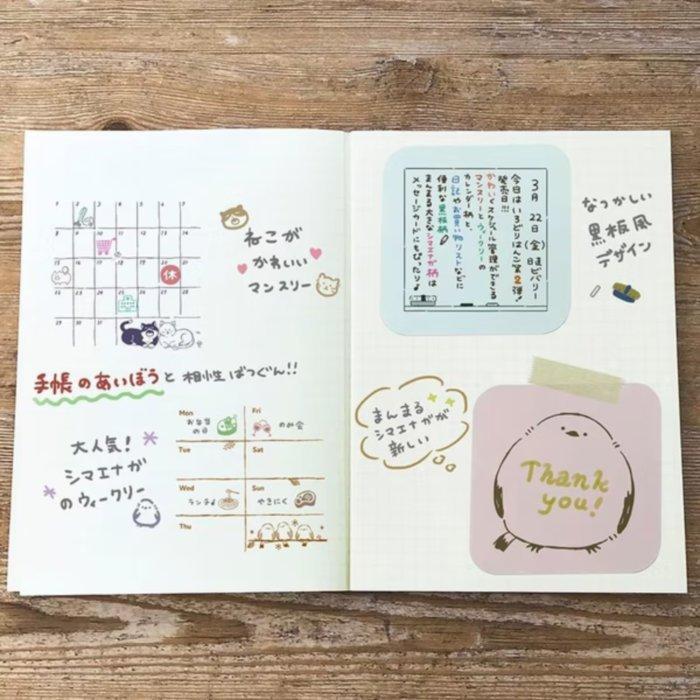 1 2 3 4 5 6 7
8 9 10 11 12 13 14
15 16 17 18 19 20 21
休
22 23 24 25 26 27 28
29 30 31
ねこが
かわいい
マンスリー
手帳のあいぼうと相性ばつぐん!!
大人気!
シマエナガ
のウィークリー
Mon
お弁当
の日
Fri
のみ会
Tue
Sat
Wed
ランチ♪
Sun
やきにく
Thu
3月22日(金)
日直 ビバリー
今日はいろどりはんペン第2弾!
発売日!!!
かわいくスケジュール管理ができる
マンスリーとウィークリーの
カレンダー柄と、
日記やお買い物リストなどに
便利な黒板柄
まんまる大きなシマエナガ柄は
メッセージカードにもぴったり♪
なつかしい
黒板風
デザイン
まんまる
シマエナガが
新しい
Thank
you!